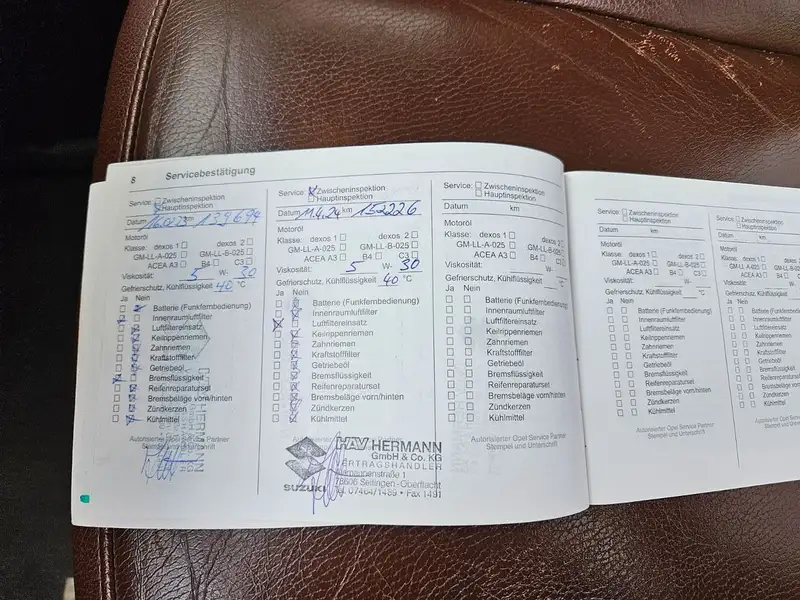 8 Servicebestätigung
Service: Zwischeninspektion
Hauptinspektion
Datum km 139694
Motoröl
Klasse: dexos 1 dexos 2
GM-LL-A-025 GM-LL-B-025
ACEA A3 B4 C3
Viskosität: 5 W- 30
Gefrierschutz, Kühlflüssigkeit 40 °C
Ja Nein
Batterie (Funkfernbedienung)
Innenraumluftfilter
Luftfiltereinsatz
Keilrippenriemen
Zahnriemen
Kraftstofffilter
Getriebeöl
Bremsflüssigkeit
Reifenreparaturset
Bremsbeläge vorn/hinten
Zündkerzen
Kühlmittel
Autorisierter Opel Service Partner
Stempel und Unterschrift
Service: Zwischeninspektion
Hauptinspektion
Datum 11.4.24 km 152226
Motoröl
Klasse: dexos 1 dexos 2
GM-LL-A-025 GM-LL-B-025
ACEA A3 B4 C3
Viskosität: 5 W- 30
Gefrierschutz, Kühlflüssigkeit 40 °C
Ja Nein
Batterie (Funkfernbedienung)
Innenraumluftfilter
Luftfiltereinsatz
Keilrippenriemen
Zahnriemen
Kraftstofffilter
Getriebeöl
Bremsflüssigkeit
Reifenreparaturset
Bremsbeläge vorn/hinten
Zündkerzen
Kühlmittel
HAV HERMANN
GmbH & Co. KG
VERTRAGSHÄNDLER
78606 Seitingen-Oberflacht
Tel. 07464/1489 • Fax 1491
SUZUKI
Service: Zwischeninspektion
Hauptinspektion
Datum km
Motoröl
Klasse: dexos 1 dexos 2
GM-LL-A-025 GM-LL-B-025
ACEA A3 B4 C3
Viskosität: W-
Gefrierschutz, Kühlflüssigkeit °C
Ja Nein
Batterie (Funkfernbedienung)
Innenraumluftfilter
Luftfiltereinsatz
Keilrippenriemen
Zahnriemen
Kraftstofffilter
Getriebeöl
Bremsflüssigkeit
Reifenreparaturset
Bremsbeläge vorn/hinten
Zündkerzen
Kühlmittel
Autorisierter Opel Service Partner
Stempel und Unterschrift
Service: Zwischeninspektion
Hauptinspektion
Datum km
Motoröl
Klasse: dexos 1 dexos 2
GM-LL-A-025 GM-LL-B-025
ACEA A3 B4 C3
Viskosität: W-
Gefrierschutz, Kühlflüssigkeit °C
Ja Nein
Batterie (Funkfernbedienung)
Innenraumluftfilter
Luftfiltereinsatz
Keilrippenriemen
Zahnriemen
Kraftstofffilter
Getriebeöl
Bremsflüssigkeit
Reifenreparaturset
Bremsbeläge vorn/hinten
Zündkerzen
Kühlmittel
Autorisierter Opel Service Partner
Stempel und Unterschrift
Service: Zwischeninspektion
Hauptinspektion
Datum km
Motoröl
Klasse: dexos 1
GM-LL-A-025
ACEA A3 B4
Viskosität:
Gefrierschutz, Kühlflüssigkeit
Ja Nein
Batterie
Innenraumluftfilter
Luftfiltereinsatz
Keilrippenriemen
Zahnriemen
Kraftstofffilter
Getriebeöl
Bremsflüssigkeit
Reifenreparaturset
Bremsbeläge
Zündkerzen
Kühlmittel
Autorisierter Opel
Stempel und